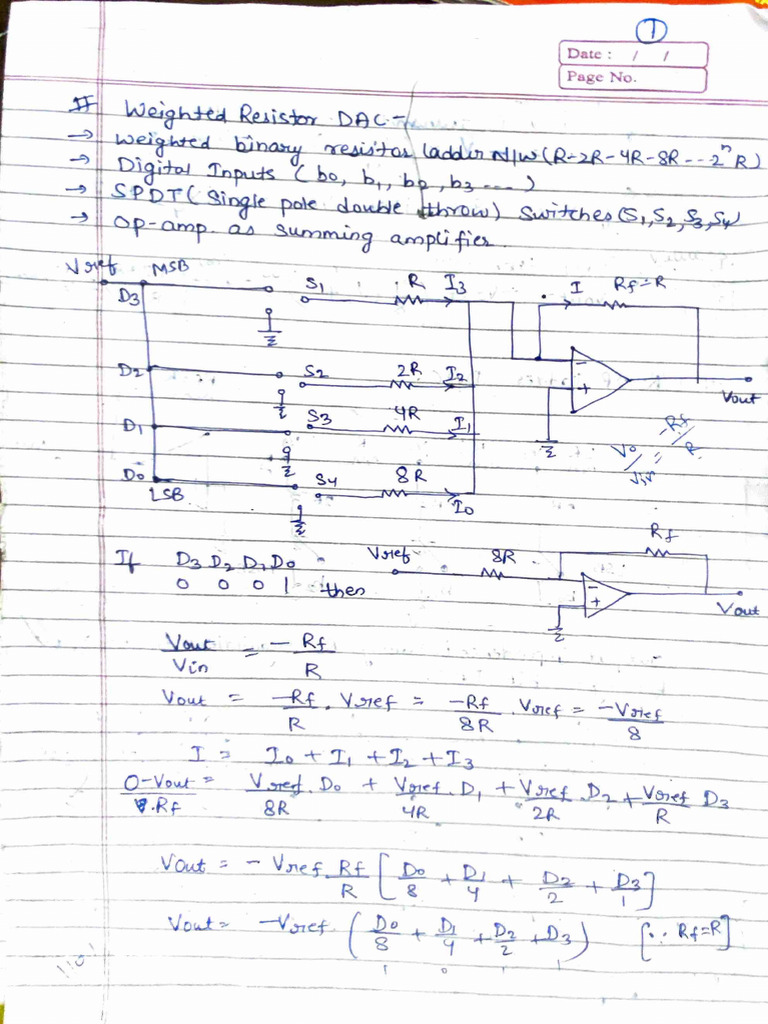 1
Date : / /
Page No.
# Weighted Resistor DAC-
→ Weighted binary resistor ladder N/W (R-2R-4R-8R-- 2ⁿR)
→ Digital Inputs (b0, b1, b2, b3 ---)
→ SPDT (Single pole double throw) Switches (S1, S2, S3, S4)
→ Op-amp. as summing amplifier.
Vref MSB S1 R I3 I Rf=R
D3
D2 S2 2R I2 - + Vout
D1 S3 4R I1
Vo/Vin = -Rf/R
D0 S4 8R I0
LSB
If D3 D2 D1 D0 Vref 8R Rf
0 0 0 1 then - + Vout
Vout/Vin = -Rf/R
Vout = -Rf/R . Vref = -Rf/8R . Vref = -Vref/8
I = I0 + I1 + I2 + I3
0-Vout/Rf = Vref/8R . D0 + Vref/4R . D1 + Vref/2R . D2 + Vref/R D3
Vout = - Vref Rf/R [D0/8 + D1/4 + D2/2 + D3/1]
Vout = -Vref. (D0/8 + D1/4 + D2/2 + D3) [∵ Rf=R]
1 0 1 1